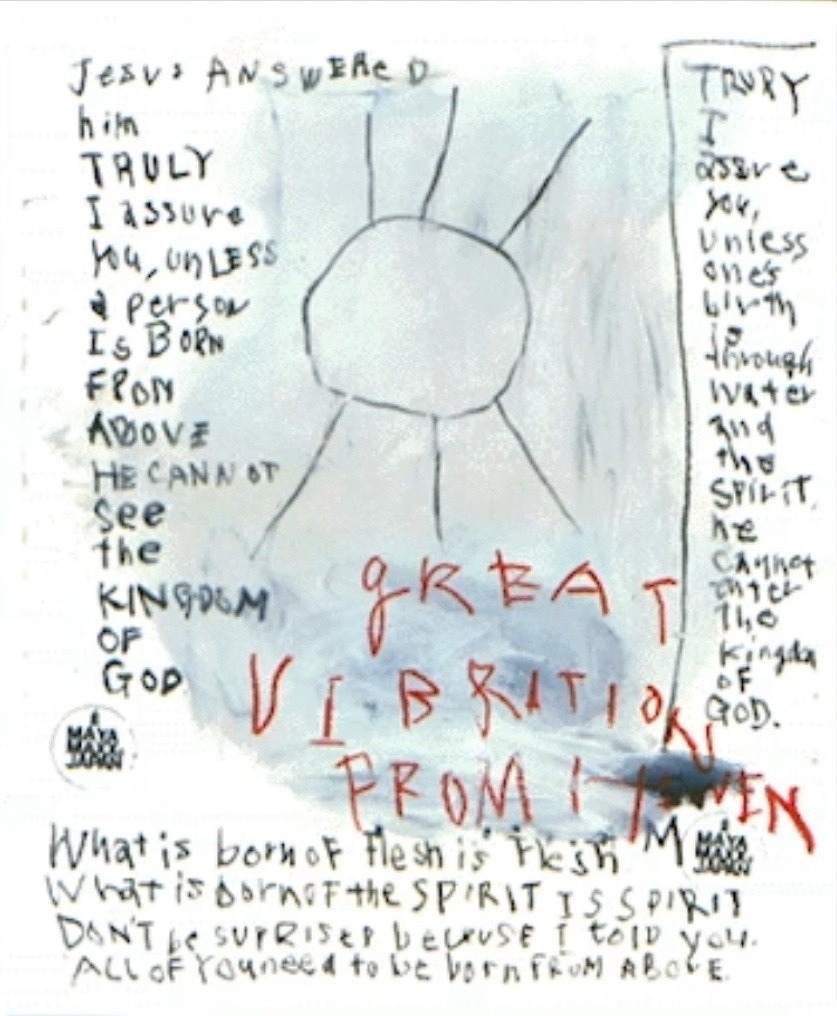 Jesus ANSWEReD
him
TRULY
I assure
you, unLESS
a person
Is BORN
FROM
ABOVE
HE CANNOT
see
the
KINGDOM
OF
GOD
TRURY
I
assure
you,
unless
one's
birth
is
through
water
and
the
SPirit
he
cannot
enter
the
kingdom
OF
GOD.
gREAT
VIBRITION
FROM HEWEN
MAYA
MAXX
JAPAN
MAYA
MAXX
JAPAN
What is born of flesh is flesh
What is born of the SPIRIT IS SPIRIT
DON'T be SUPRISED becuuse I told you.
ALL OF You need to be born FROM ABOVE.